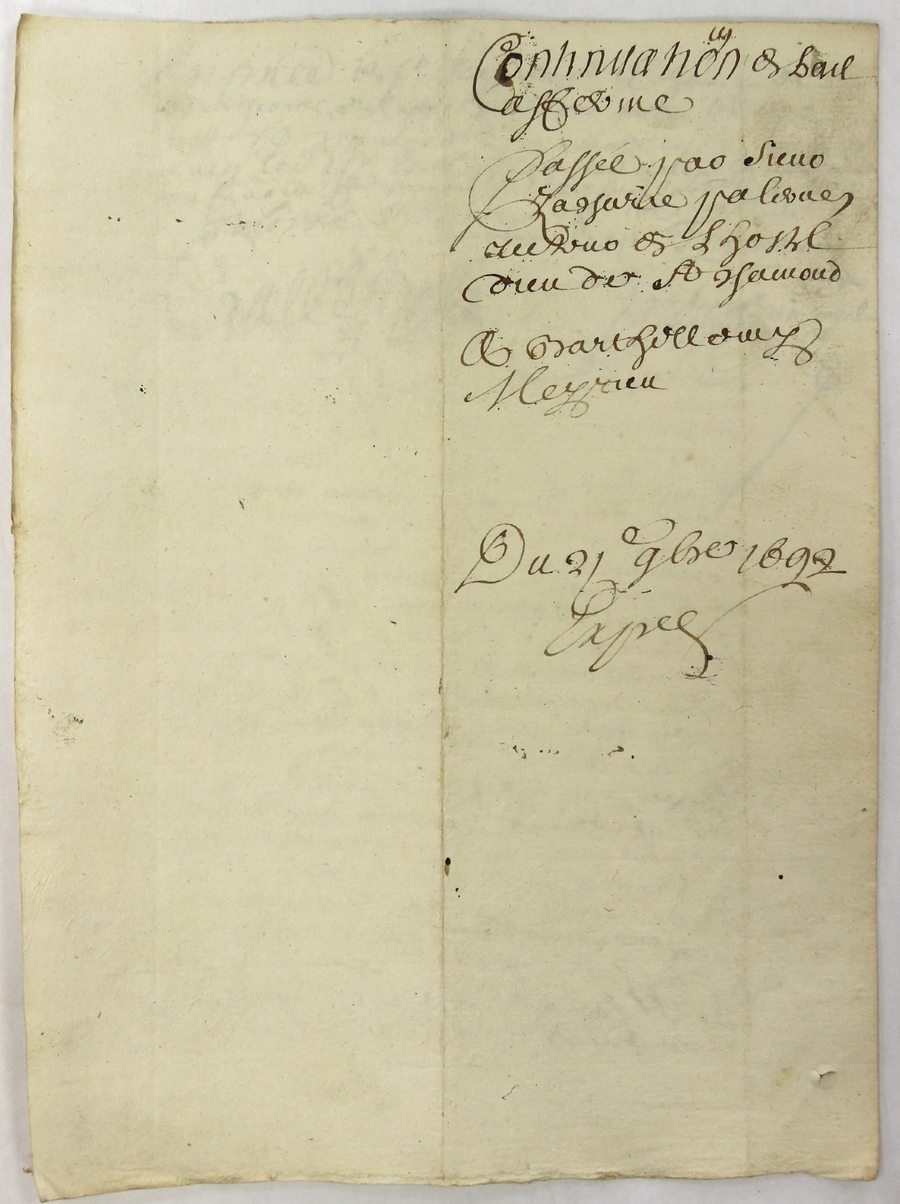 Continuation de bail
afferme
Passée par sieur
Zacharie palerne
recteur de L'hostel
dieu de St chamond
A Barthellemy
Meyrieu
Du 21 9bre 1692